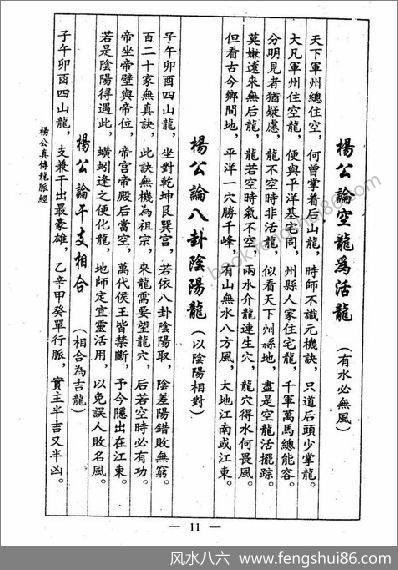 楊公論空龍為活龍（有水必無風）
天下軍州總住空，何曾掌着后山龍，時師不識元機訣，只道后頭少掌龍。
大凡軍州住空龍，便與平洋基宅同，州縣人家住宅龍，千軍萬馬總能容。
分明見者猶疑慮，龍不空時非活龍，似看天下州縣地，盡是空龍活擺踪。
莫嫌遠來無后龍，龍若空時氣不空，兩水介龍連生穴，龍穴得水何畏風。
但看古今鄉間地，平洋一穴勝千峰，有山無水八方風，大地江南或江東。
楊公論八卦陰陽龍（以陰陽相對）
子午卯酉四山龍，坐對乾坤艮巽宮，若依八卦陰陽取，陰差陽錯敗無窮。
百二十家無真訣，此訣無機為祖宗，來龍需要望龍穴，后若空時必有功。
帝坐帝壁與帝位，帝宮帝殿后當空，萬代侯王皆禁斷，予今隱出在江東。
若是陰陽得遇此，蚓逢之便化龍，地師定宜靈活用，以免誤人敗名風。
楊公論干支相合（相合為吉龍）
子午卯酉四山龍，支兼干出最豪雄，乙辛甲癸單行脈，實主半吉又半凶。
楊公真傳龍脈經
— 11 —
风水八六：www.fengshui86.com